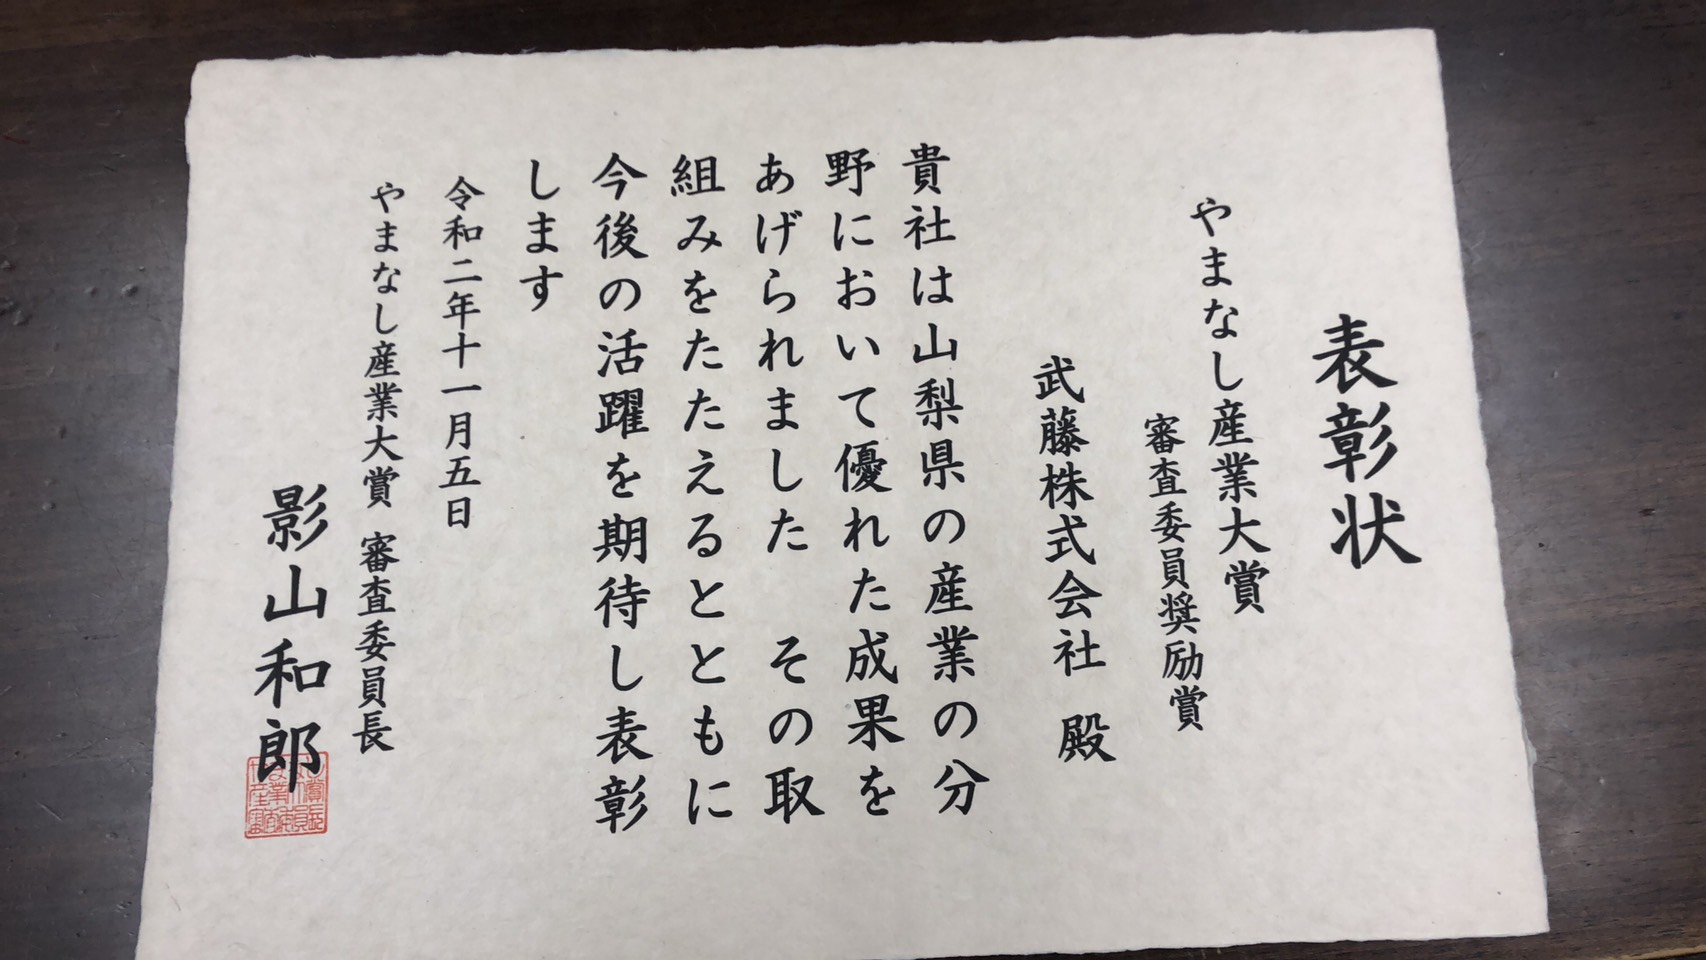 表彰状
やまなし産業大賞
審査委員奨励賞
武藤株式会社 殿
貴社は山梨県の産業の分
野において優れた成果を
あげられました その取
組みをたたえるとともに
今後の活躍を期待し表彰
します
令和二年十一月五日
やまなし産業大賞 審査委員長
影山和郎